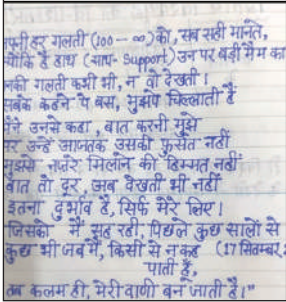 पनी हर गलती (100 — ∞) को, सब सही मानते,
योंकि है हाथ (साथ- Support) उन पर बड़ी मैम का
नकी गलती कभी भी, न वो देखती।
सबके कहने पे बस, मुझपे चिल्लाती हैं
मैंने उनसे कहा, बात करनी मुझे
पर उन्हें आजतक उसकी फुर्सत नहीं
मुझसे नज़रें मिलाने की हिम्मत नहीं
बात तो दूर, अब देखती भी नहीं
इतना दुर्भाव है, सिर्फ मेरे लिए।
जिसको मैं सह रही पिछले कुछ सालों से
कुछ भी जब मैं, किसी से न कह (17 सितम्बर
पाती हूँ,
तब कलम ही, मेरी वाणी बन जाती है।"